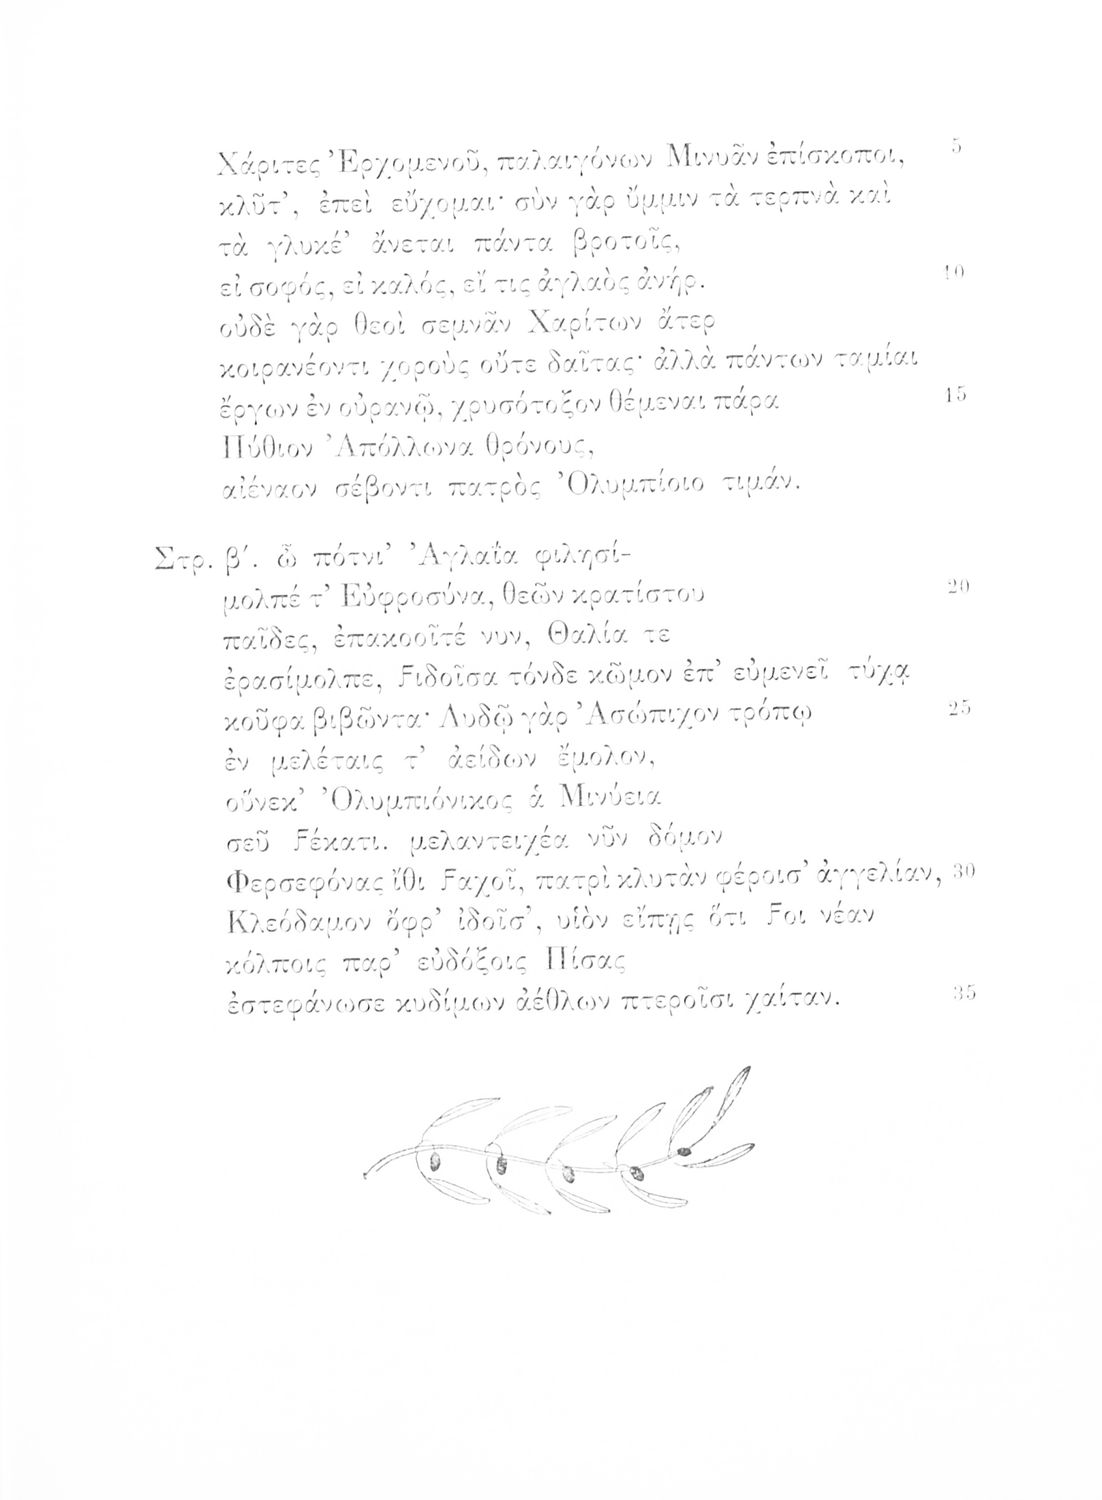 Χάριτες Ἐρχομενοῦ, παλαιγόνων Μινυᾶν ἐπίσκοποι, 5
κλῦτ’, ἐπεὶ εὔχομαι· σὺν γὰρ ὔμμιν τὰ τερπνὰ καὶ
τὰ γλυκέ’ ἄνεται πάντα βροτοῖς,
εἰ σοφός, εἰ καλός, εἴ τις ἀγλαὸς ἀνήρ. 10
οὐδὲ γὰρ θεοὶ σεμνᾶν Χαρίτων ἄτερ
κοιρανέοντι χοροὺς οὔτε δαῖτας· ἀλλὰ πάντων ταμίαι
ἔργων ἐν οὐρανῷ, χρυσότοξον θέμεναι πάρα 15
Πύθιον Ἀπόλλωνα θρόνους,
αἰέναον σέβοντι πατρὸς Ὀλυμπίοιο τιμάν.
Στρ. β΄. ὦ πότνι’ Ἀγλαΐα φιλησί-
μολπέ τ’ Εὐφροσύνα, θεῶν κρατίστου 20
παῖδες, ἐπακοοῖτέ νυν, Θαλία τε
ἐρασίμολπε, Ϝιδοῖσα τόνδε κῶμον ἐπ’ εὐμενεῖ τύχᾳ
κοῦφα βιβῶντα· Λυδῷ γὰρ Ἀσώπιχον τρόπῳ 25
ἐν μελέταις τ’ ἀείδων ἔμολον,
οὕνεκ’ Ὀλυμπιόνικος ἁ Μινύεια
σεῦ Ϝέκατι. μελαντειχέα νῦν δόμον
Φερσεφόνας ἴθι Ϝαχοῖ, πατρὶ κλυτὰν φέροισ’ ἀγγελίαν, 30
Κλεόδαμον ὄφρ’ ἰδοῖσ’, υἱὸν εἴπῃς ὅτι Ϝοι νέαν
κόλποις παρ’ εὐδόξοις Πίσας
ἐστεφάνωσε κυδίμων ἀέθλων πτεροῖσι χαίταν. 35